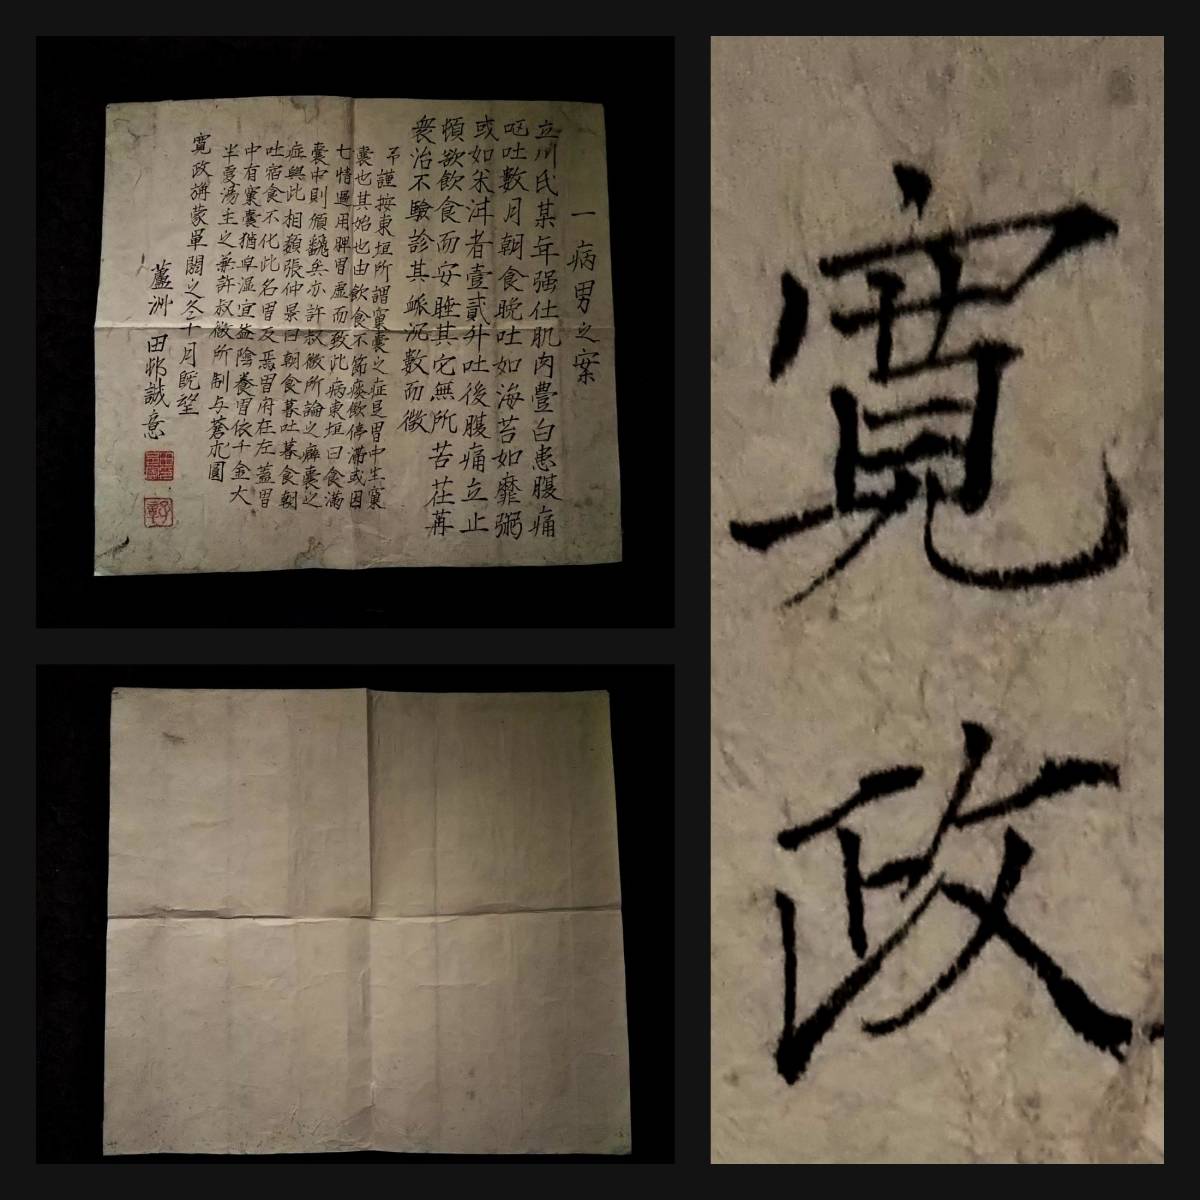 一病男之案
立川氏某年强仕肌肉豊白患腹痛
呕吐数月朝食晩吐如海苔如靡粥
或如米泔者壹貳升吐後腹痛立止
頃欲飲食而安睡其它無所苦荏苒
衆治不驗診其脈沉數而微
予謹按東垣所謂窠囊之症是胃中生窠
囊也其始也由飲食不節痰飲停滯或因
七情過用脾胃虚而致此病東垣曰食滿
囊中則傾飜矣亦許叔微所論之癖囊之
症與此相類張仲景曰朝食暮吐暮食朝
吐宿食不化此名胃反焉胃府在左蓋胃
中有窠囊猶卑濕宜益陰養胃依千金大
半夏湯主之兼許叔微所制与蒼朮圓
寛政旃蒙單閼之冬十月既望
蘆洲 田邨誠意
寛
政